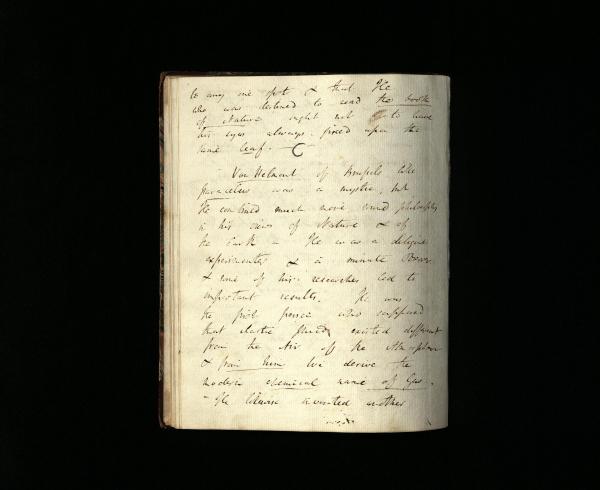 to any one spot & that He
who was destined to read the book
of Nature ought not to have
his eyes always fixed upon the
same leaf. —
Van Helmont of Brussels like
Paracelsus was a mystic, but
He combined much more sound philosophy
in his views of Nature & of
he was a diligent
experimenter & a minute
& some of his researches led to
important results. He was
the first person who supposed
that elastic fluids existed different
from the Air of the Atmosphere
& from him we derive the
modern chemical name of Gas.
— He likewise invented another